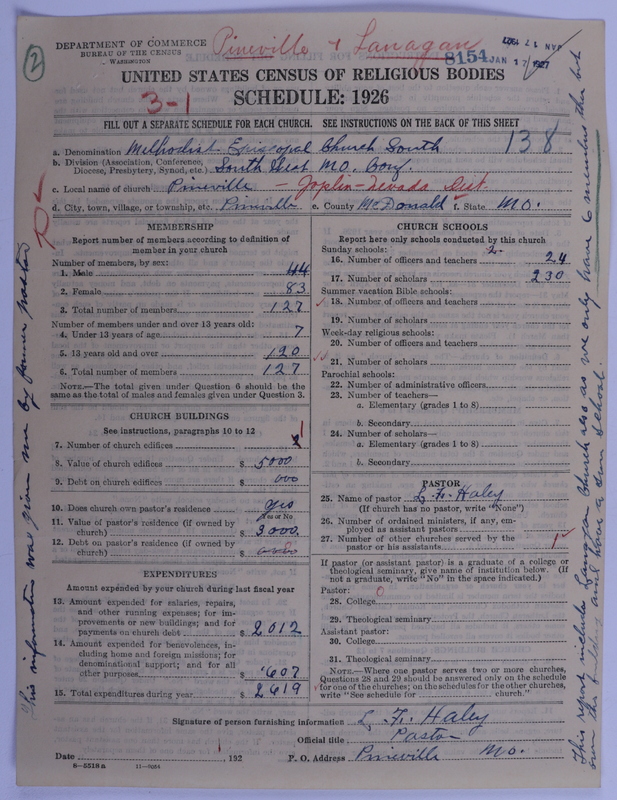 2
DEPARTMENT OF COMMERCE
BUREAU OF THE CENSUS
WASHINGTON
Pineville & Lanagan
8154 JAN 17 1927
UNITED STATES CENSUS OF RELIGIOUS BODIES
3-1
SCHEDULE: 1926
FILL OUT A SEPARATE SCHEDULE FOR EACH CHURCH. SEE INSTRUCTIONS ON THE BACK OF THIS SHEET
138
a. Denomination Methodist Episcopal Church South
b. Division (Association, Conference, Diocese, Presbytery, Synod, etc.) South West MO. Conf.
c. Local name of church Pineville - Joplin-Nevada Dist.
d. City, town, village, or township, etc. Pineville e. County McDonald f. State MO.
MEMBERSHIP
Report number of members according to definition of
member in your church
Number of members, by sex:
1. Male 44
2. Female 83
3. Total number of members 127
Number of members under and over 13 years old:
4. Under 13 years of age 7
5. 13 years old and over 120
6. Total number of members 127
NOTE.—The total given under Question 6 should be the
same as the total of males and females given under Question 3.
CHURCH BUILDINGS
See instructions, paragraphs 10 to 12
7. Number of church edifices 1
8. Value of church edifices $ 5000
9. Debt on church edifices $ 000
10. Does church own pastor's residence? yes
Yes or No
11. Value of pastor's residence (if owned by
church) $ 3000.
12. Debt on pastor's residence (if owned by
church) $ 0000
EXPENDITURES
Amount expended by your church during last fiscal year
13. Amount expended for salaries, repairs,
and other running expenses; for im-
provements or new buildings; and for
payments on church debt $ 2012
14. Amount expended for benevolences, in-
cluding home and foreign missions; for
denominational support; and for all
other purposes $ 607
15. Total expenditures during year $ 2619
CHURCH SCHOOLS
Report here only schools conducted by this church
Sunday schools: 2-
16. Number of officers and teachers 24
17. Number of scholars 230
Summer vacation Bible schools:
18. Number of officers and teachers
19. Number of scholars
Week-day religious schools:
20. Number of officers and teachers
21. Number of scholars
Parochial schools:
22. Number of administrative officers
23. Number of teachers—
a. Elementary (grades 1 to 8)
b. Secondary
24. Number of scholars—
a. Elementary (grades 1 to 8)
b. Secondary
PASTOR
25. Name of pastor L. F. Haley
(If church has no pastor, write "None")
26. Number of ordained ministers, if any, em-
ployed as assistant pastors
27. Number of other churches served by the
pastor or his assistants 1
If pastor (or assistant pastor) is a graduate of a college or
theological seminary, give name of institution below. (If
not a graduate, write "No" in the space indicated.)
Pastor:
28. College 0
29. Theological seminary
Assistant pastor:
30. College
31. Theological seminary
NOTE.—Where one pastor serves two or more churches,
Questions 28 and 29 should be answered only on the schedule
for one of the churches; on the schedules for the other churches,
write "See schedule for church."
Signature of person furnishing information L. F. Haley
Official title Pastor
Date , 192 P. O. Address Pineville Mo.
8-5518 a 11-9054
This information was given me by former pastor
This report includes Lanagan Church also as we only have 6 members there but
own the and have a Sun School.